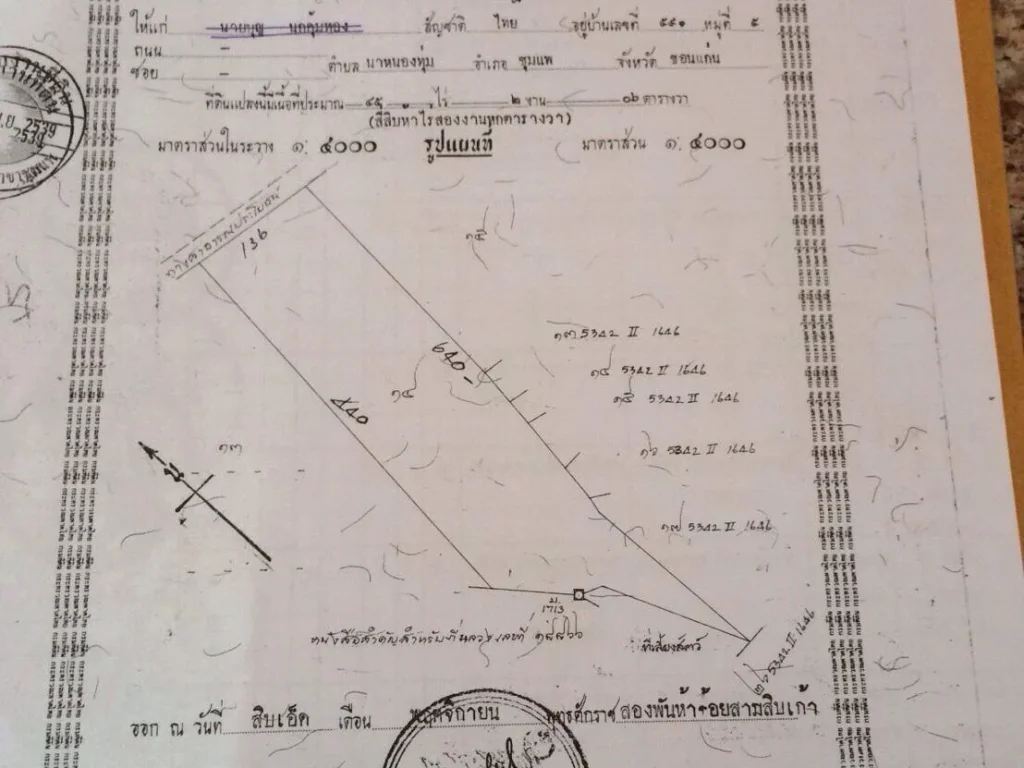 ให้แก่ นายบุญ นกคุ้มทอง สัญชาติ ไทย อยู่บ้านเลขที่ ๕๙๑ หมู่ที่ ๕
ถนน –
ซอย – ตำบล นาหนองทุ่ม อำเภอ ชุมแพ จังหวัด ขอนแก่น
ที่ดินแปลงนี้มีเนื้อที่ประมาณ ๔๕ ไร่ ๒ งาน ๐๖ ตารางวา
(สี่สิบห้าไร่สองงานหกตารางวา)
มาตราส่วนในระวาง ๑: ๔๐๐๐ รูปแผนที่ มาตราส่วน ๑: ๔๐๐๐
2539
2539
ทางสาธารณประโยชน์
136
640
440
๑๔
๑๓
๑๓ 5342 II 1646
๑๔ 5342 II 1646
๑๕ 5342 II 1646
๑๖ 5342 II 1646
๑๗ 5342 II 1646
5342 II 1646
หนังสือสำคัญสำหรับที่หลวงเลขที่ ๑๘๘๖๖
ที่เลี้ยงสัตว์
ออก ณ วันที่ สิบเอ็ด เดือน พฤศจิกายน พุทธศักราช สองพันห้าร้อยสามสิบเก้า